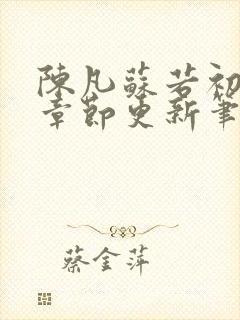 陳凡蘇若初
章節更新筆
蔡金萍